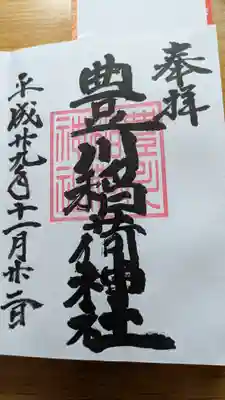 奉拝
豊川稲荷神社
平成廿九年十一月廿二日